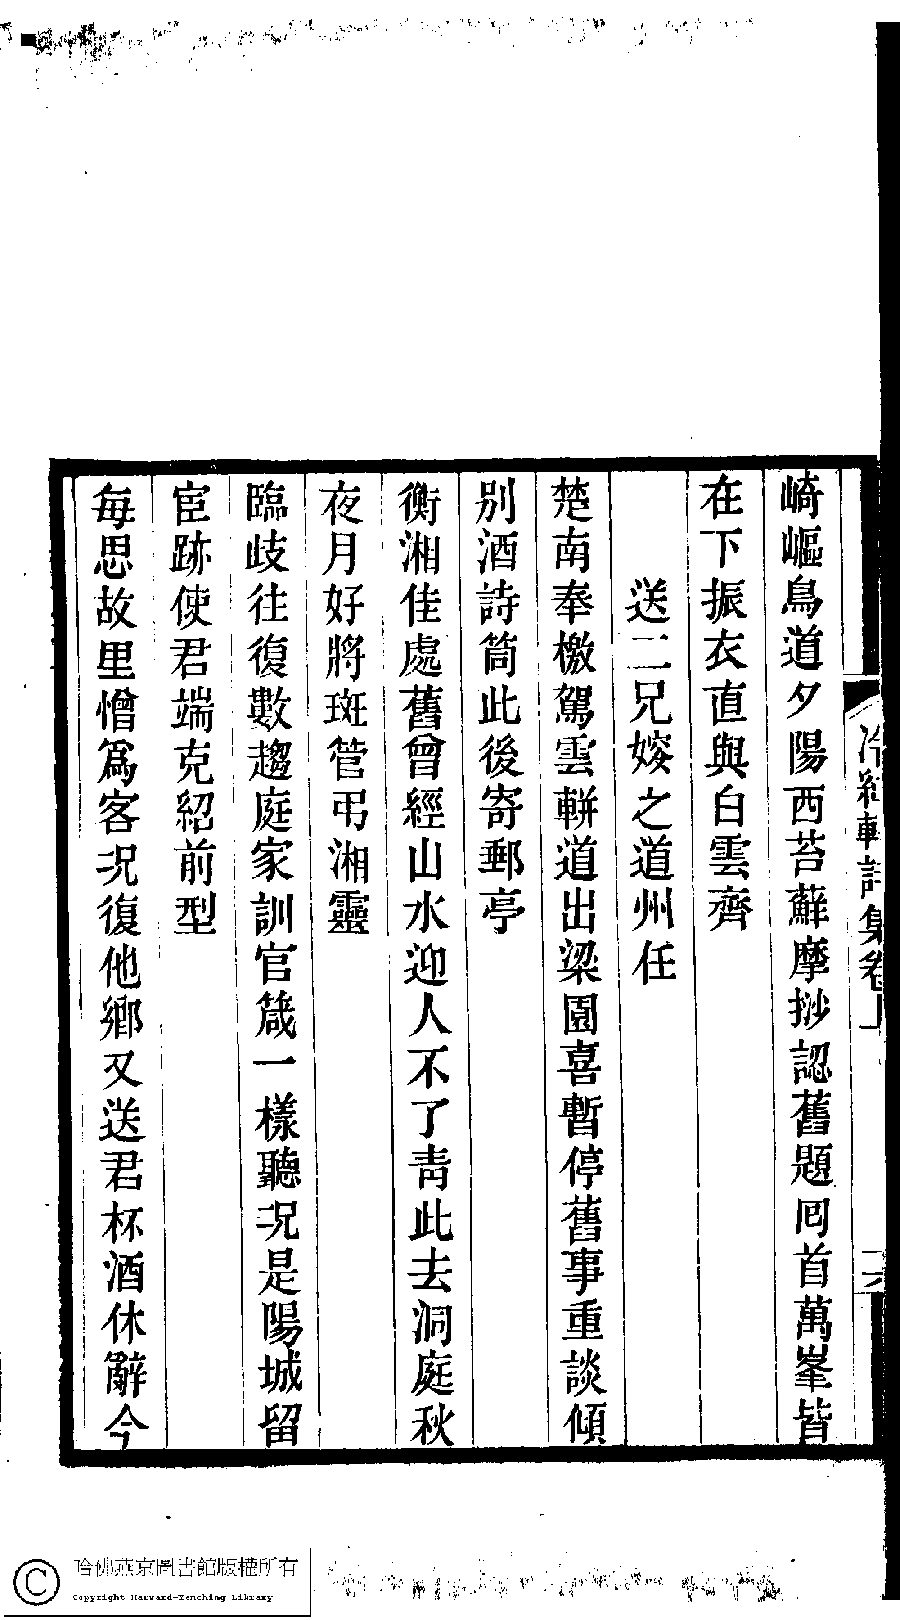 崎嶇鳥道夕陽西苔蘚摩挱認舊題囘首萬峯皆
在下振衣直與白雲齊
送二兄嫂之道州任
楚南奉檄駕雲軿道出梁園喜暫停舊事重談傾
别酒詩筒此後寄郵亭
衡湘佳處舊曾經山水迎人不了靑此去洞庭秋
夜月好將斑管弔湘靈
臨歧往復數趨庭家訓官箴一樣聽况是陽城留
宦跡使君端克紹前型
每思故里憎爲客况復他鄉又送君杯酒休辭今
詩集卷上
哈佛燕京圖書館版權所有
Copyright Harvard-Yenching Library